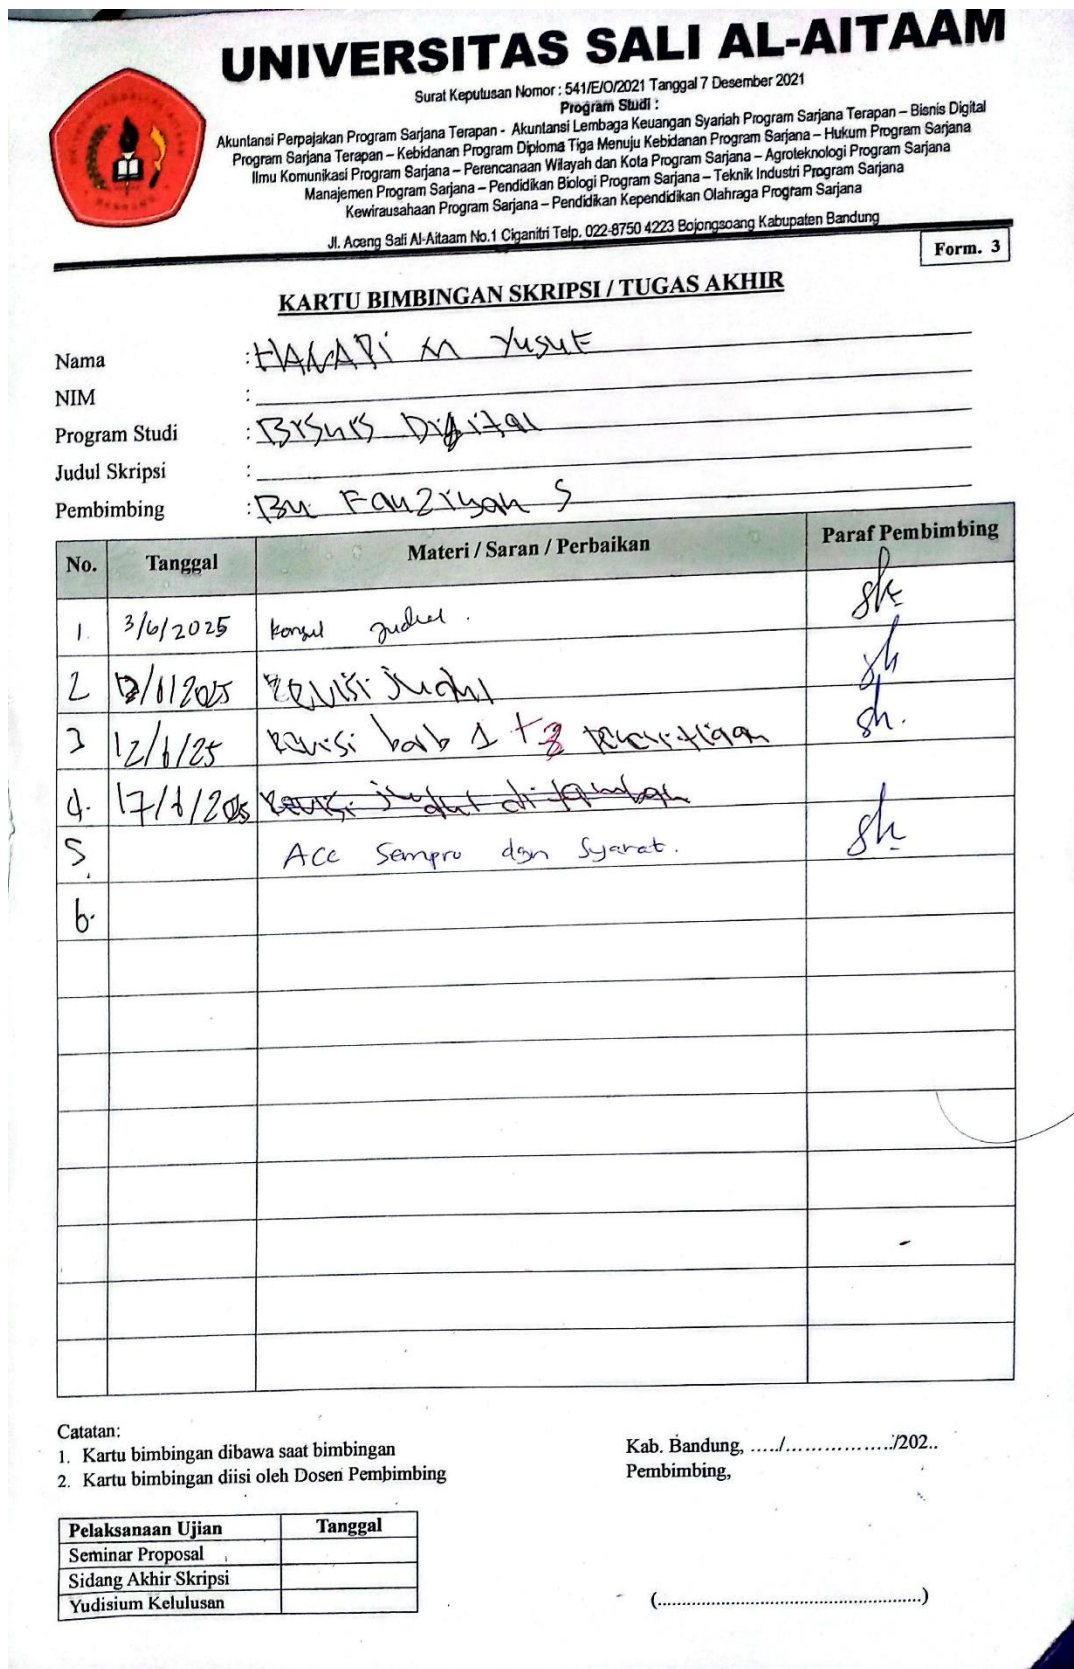 UNIVERSITAS SALI AL-AITAAM
Surat Keputusan Nomor : 541/E/O/2021 Tanggal 7 Desember 2021
Program Studi :
Akuntansi Perpajakan Program Sarjana Terapan - Akuntansi Lembaga Keuangan Syariah Program Sarjana Terapan – Bisnis Digital
Program Sarjana Terapan – Kebidanan Program Diploma Tiga Menuju Kebidanan Program Sarjana – Hukum Program Sarjana
Ilmu Komunikasi Program Sarjana – Perencanaan Wilayah dan Kota Program Sarjana – Agroteknologi Program Sarjana
Manajemen Program Sarjana – Pendidikan Biologi Program Sarjana – Teknik Industri Program Sarjana
Kewirausahaan Program Sarjana – Pendidikan Kependidikan Olahraga Program Sarjana
Jl. Aceng Sali Al-Aitaam No.1 Ciganitri Telp. 022-8750 4223 Bojongsoang Kabupaten Bandung
Form. 3
KARTU BIMBINGAN SKRIPSI / TUGAS AKHIR
Nama : HANAPi M Yusuf
NIM :
Program Studi : Bisnis Digital
Judul Skripsi :
Pembimbing : Bu Fauziyah S
No. Tanggal Materi / Saran / Perbaikan Paraf Pembimbing
1. 3/6/2025 konsul judul.
2 /6/2025 revisi judul
3 12/6/25 Revisi bab 1 +
4. 17/6/2025 Revisi judul di tambah
5. Acc Sempro dgn Syarat.
6.
Catatan:
1. Kartu bimbingan dibawa saat bimbingan
2. Kartu bimbingan diisi oleh Dosen Pembimbing
Kab. Bandung, ...../................../202..
Pembimbing,
Pelaksanaan Ujian Tanggal
Seminar Proposal
Sidang Akhir Skripsi
Yudisium Kelulusan
(......................................................)